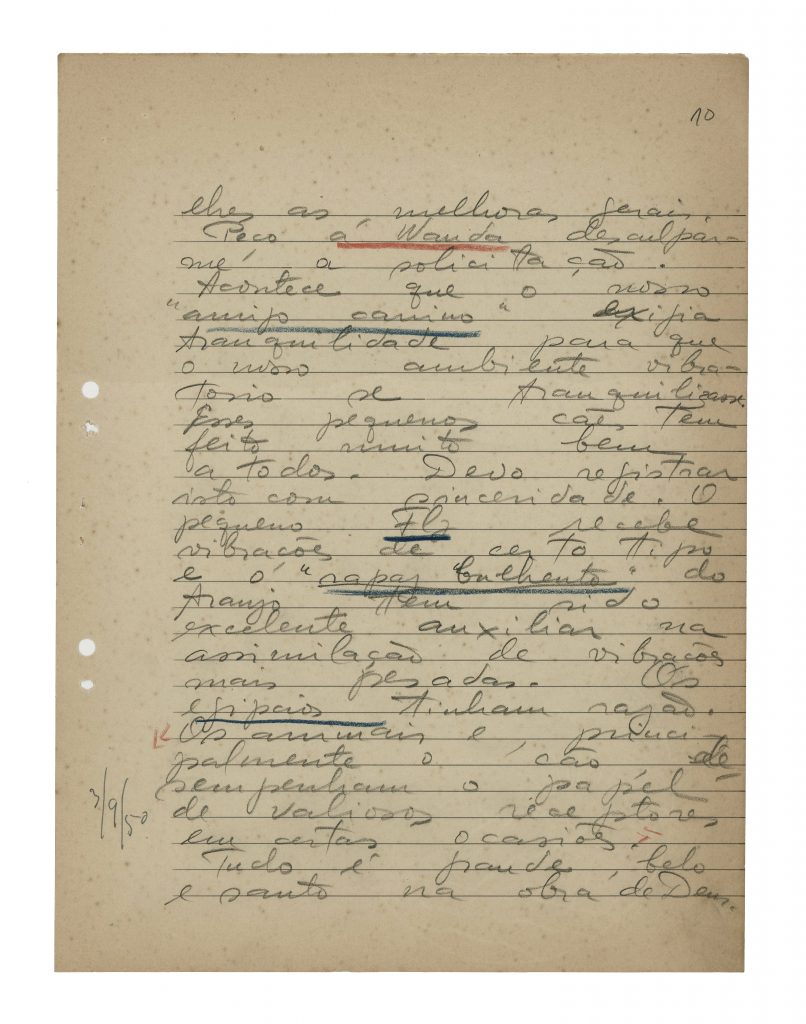 10
lhes as melhoras gerais.
Peço á Wanda desculpar-
me a solicitação.
Acontece que o nosso
"amigo canino" exigia
tranquilidade para que
o nosso ambiente vibra-
torio se tranquilizasse.
Esses pequenos cães tem
feito muito bem
a todos. Devo registrar
isto com sinceridade. O
pequeno Flz recebe
vibrações de certo tipo
e o "rapaz bulhento" do
Araujo tem sido
excelente auxiliar na
assimilação de vibrações
mais pesadas. Os
egipcios tinham razão.
Os animais e, princi-
palmente o cão de-
sempenham o papel
de valiosos receptores
em certas ocasiões.
3/9/50
Tudo é grande, belo
e santo na obra de Deus.